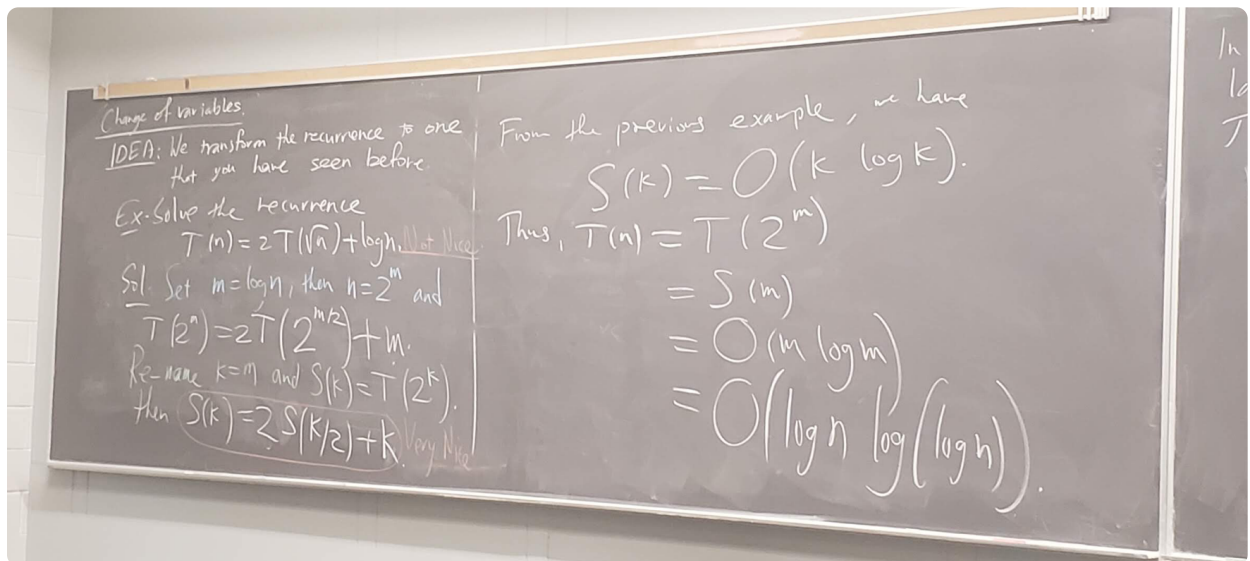 Change of variables.
IDEA: We transform the recurrence to one
that you have seen before.
Ex. Solve the recurrence
T(n) = 2T(√n) + log n. Not Nice
Sol. Set m = log n, then n = 2^m and
T(2^m) = 2T(2^{m/2}) + m.
Re-name k = m and S(k) = T(2^k).
then S(k) = 2S(k/2) + k. Very Nice
From the previous example, we have
S(k) = O(k log k).
Thus, T(n) = T(2^m)
= S(m)
= O(m log m)
= O(log n log(log n)).
In